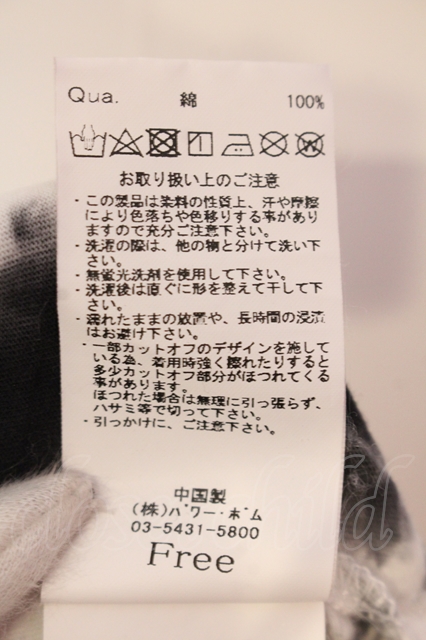 Qua. 綿 100%
お取り扱い上のご注意
・この製品は染料の性質上、汗や摩擦
により色落ちや色移りする事があり
ますので充分ご注意下さい。
・洗濯の際は、他の物と分けて洗い下
さい。
・無蛍光洗剤を使用して下さい。
・洗濯後は直ぐに形を整えて干して下
さい。
・濡れたままの放置や、長時間の浸漬
はお避け下さい。
・一部カットオフのデザインを施して
いる為、着用時強く擦れたりすると
多少カットオフ部分がほつれてくる
事があります。
ほつれた場合は無理に引っ張らず、
ハサミ等で切って下さい。
・引っかけに、ご注意下さい。
中国製
(株)パワー・ホム
03-5431-5800
Free